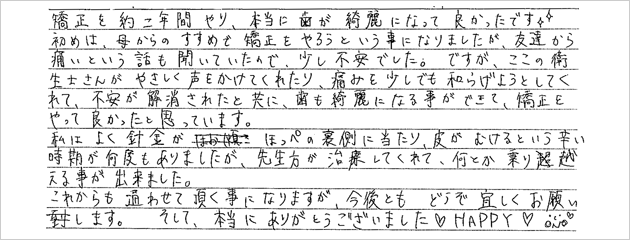 矯正を約二年間やり、本当に歯が綺麗になって良かったです。
初めは、母からのすすめで矯正をやろうという事になりましたが、友達から
痛いという話も聞いていたので、少し不安でした。ですが、ここの衛
生士さんがやさしく声をかけてくれたり、痛みを少しでも和らげようとしてく
れて、不安が解消されたと共に、歯も綺麗になる事ができて、矯正を
やって良かったと思っています。
私はよく針金が ほっぺの裏側に当たり、皮がむけるという辛い
時期が何度もありましたが、先生方が治療してくれて、何とか乗り越
える事が出来ました。
これからも通わせて頂く事になりますが、今後とも どうぞ宜しくお願い
致します。 そして、本当にありがとうございました♡HAPPY♡